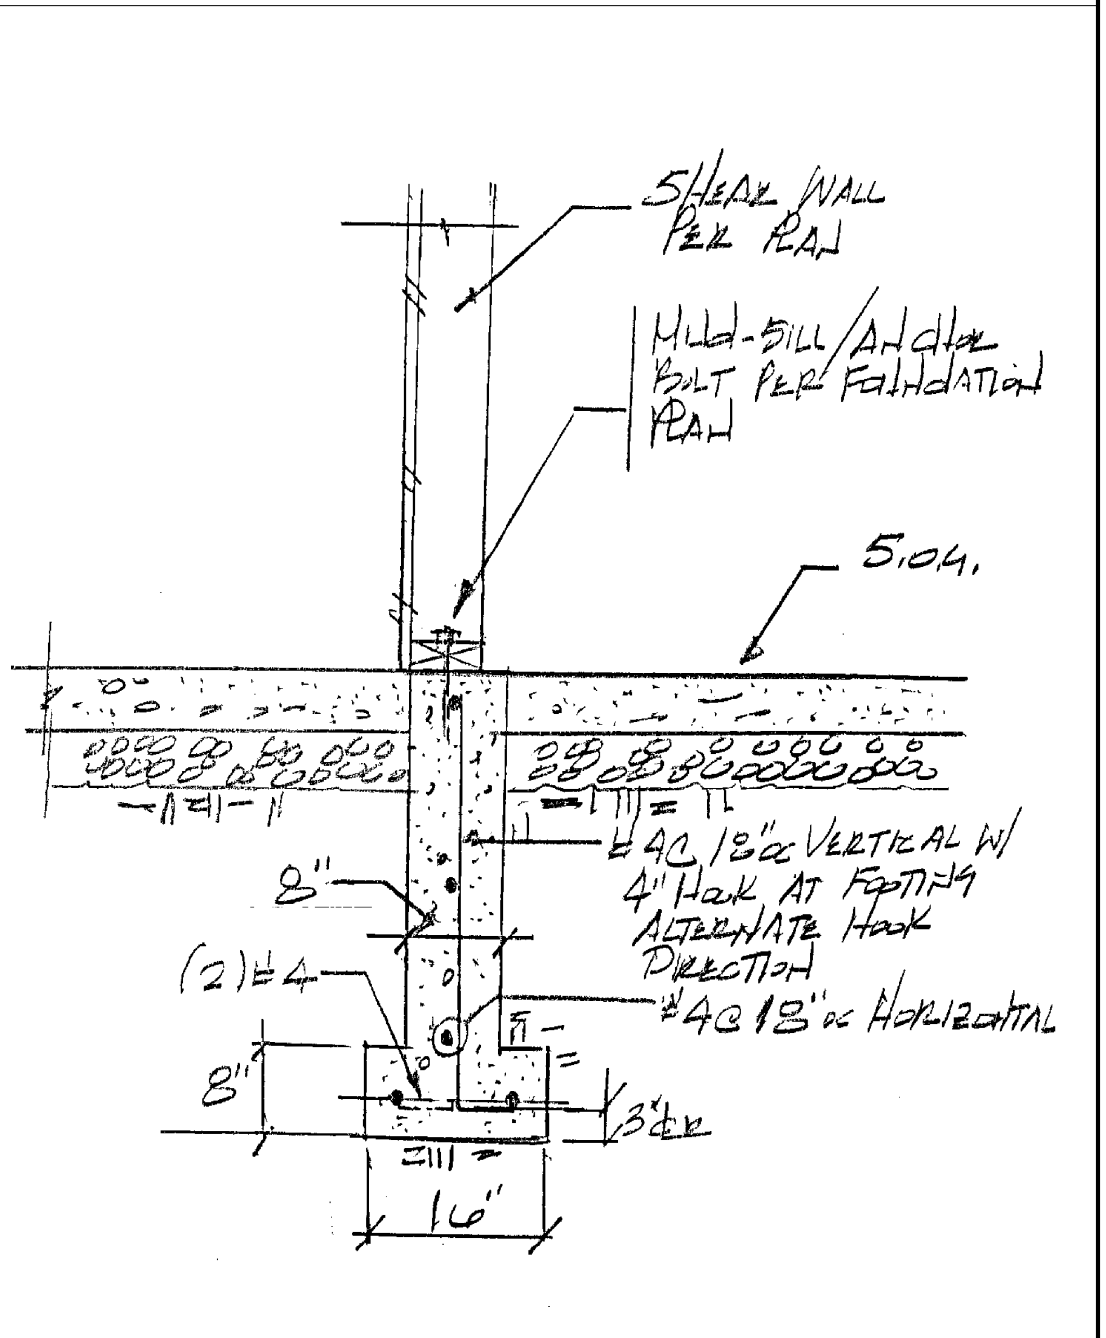 SHEAR WALL
PER PLAN
MUD-SILL/ANCHOR
BOLT PER FOUNDATION
PLAN
S.O.G.
8"
#4@18"oc VERTICAL W/
4" HOOK AT FOOTING
ALTERNATE HOOK
DIRECTION
(2)#4
#4@18"oc HORIZONTAL
8"
3"CLR
16"